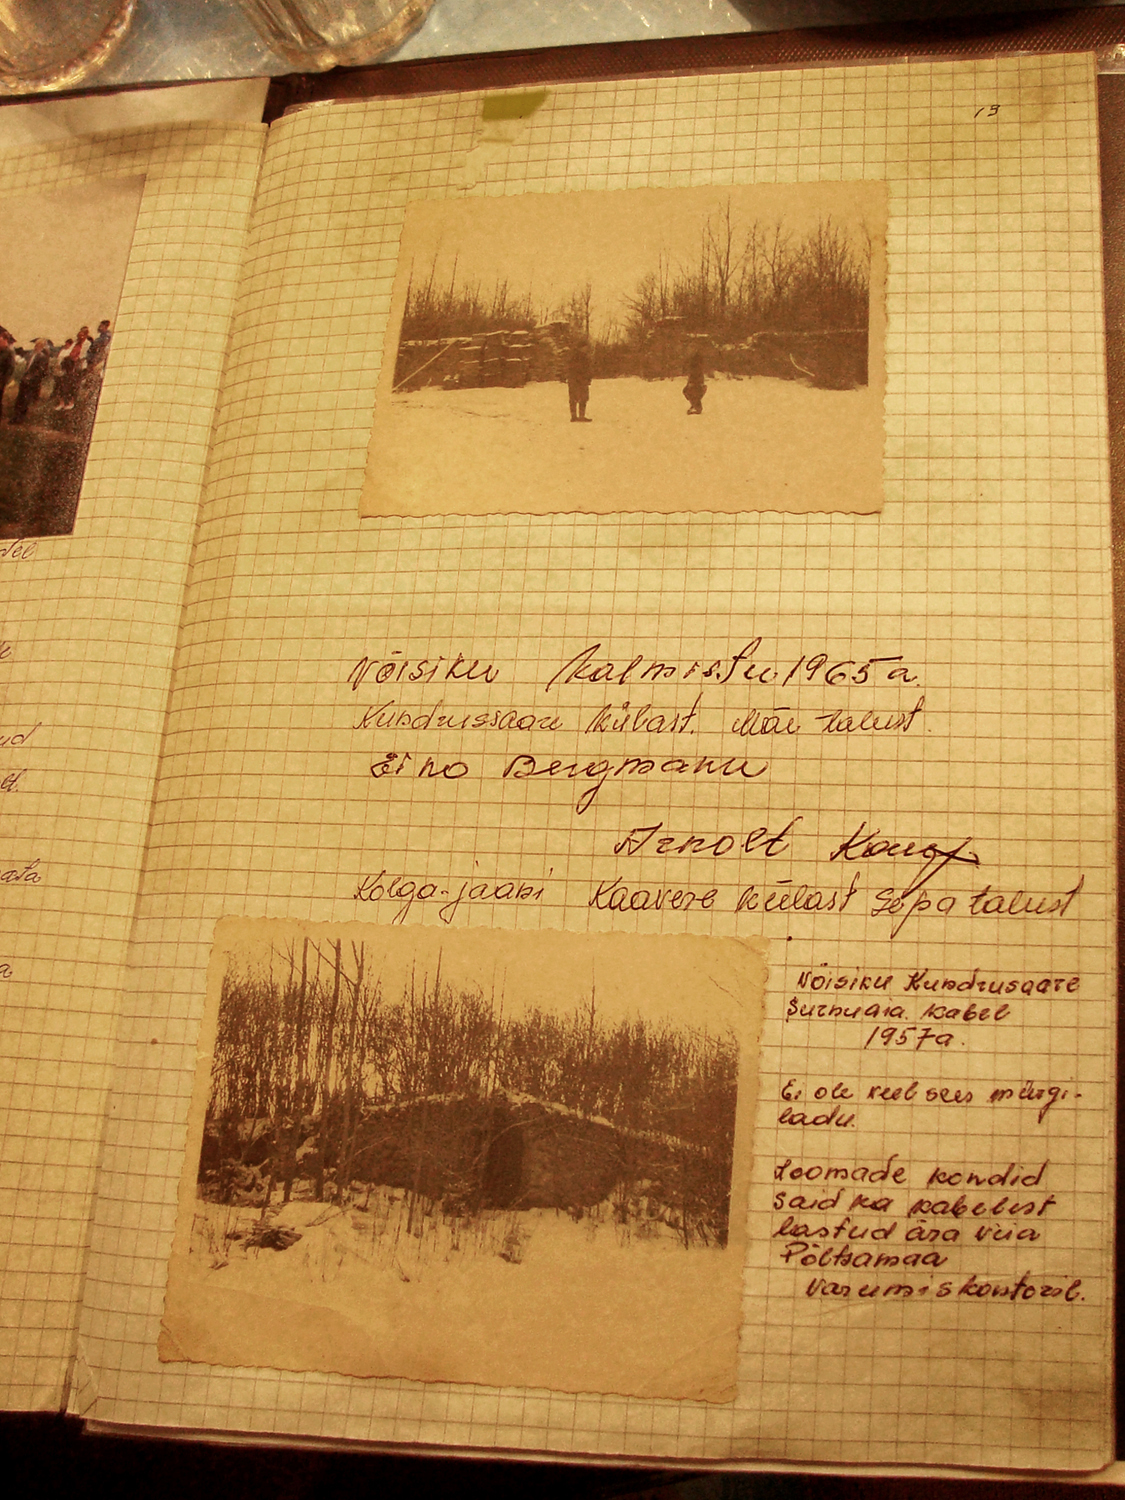 19
Nõisiku kalmistu 1965 a.
Kundrussaare külast. Mäe talust.
Eino Bergmann
Arnolt
Kolga-jaani Kaavere külast Sepa talust
Nõisiku Kundrusaare
Surnuaia kabel
1957a.
Ei ole veel sees mürgi-
ladu.
Loomade kondid
said ka kabelist
lastud ära viia
Põltsamaa
Varumiskontoril.
ata